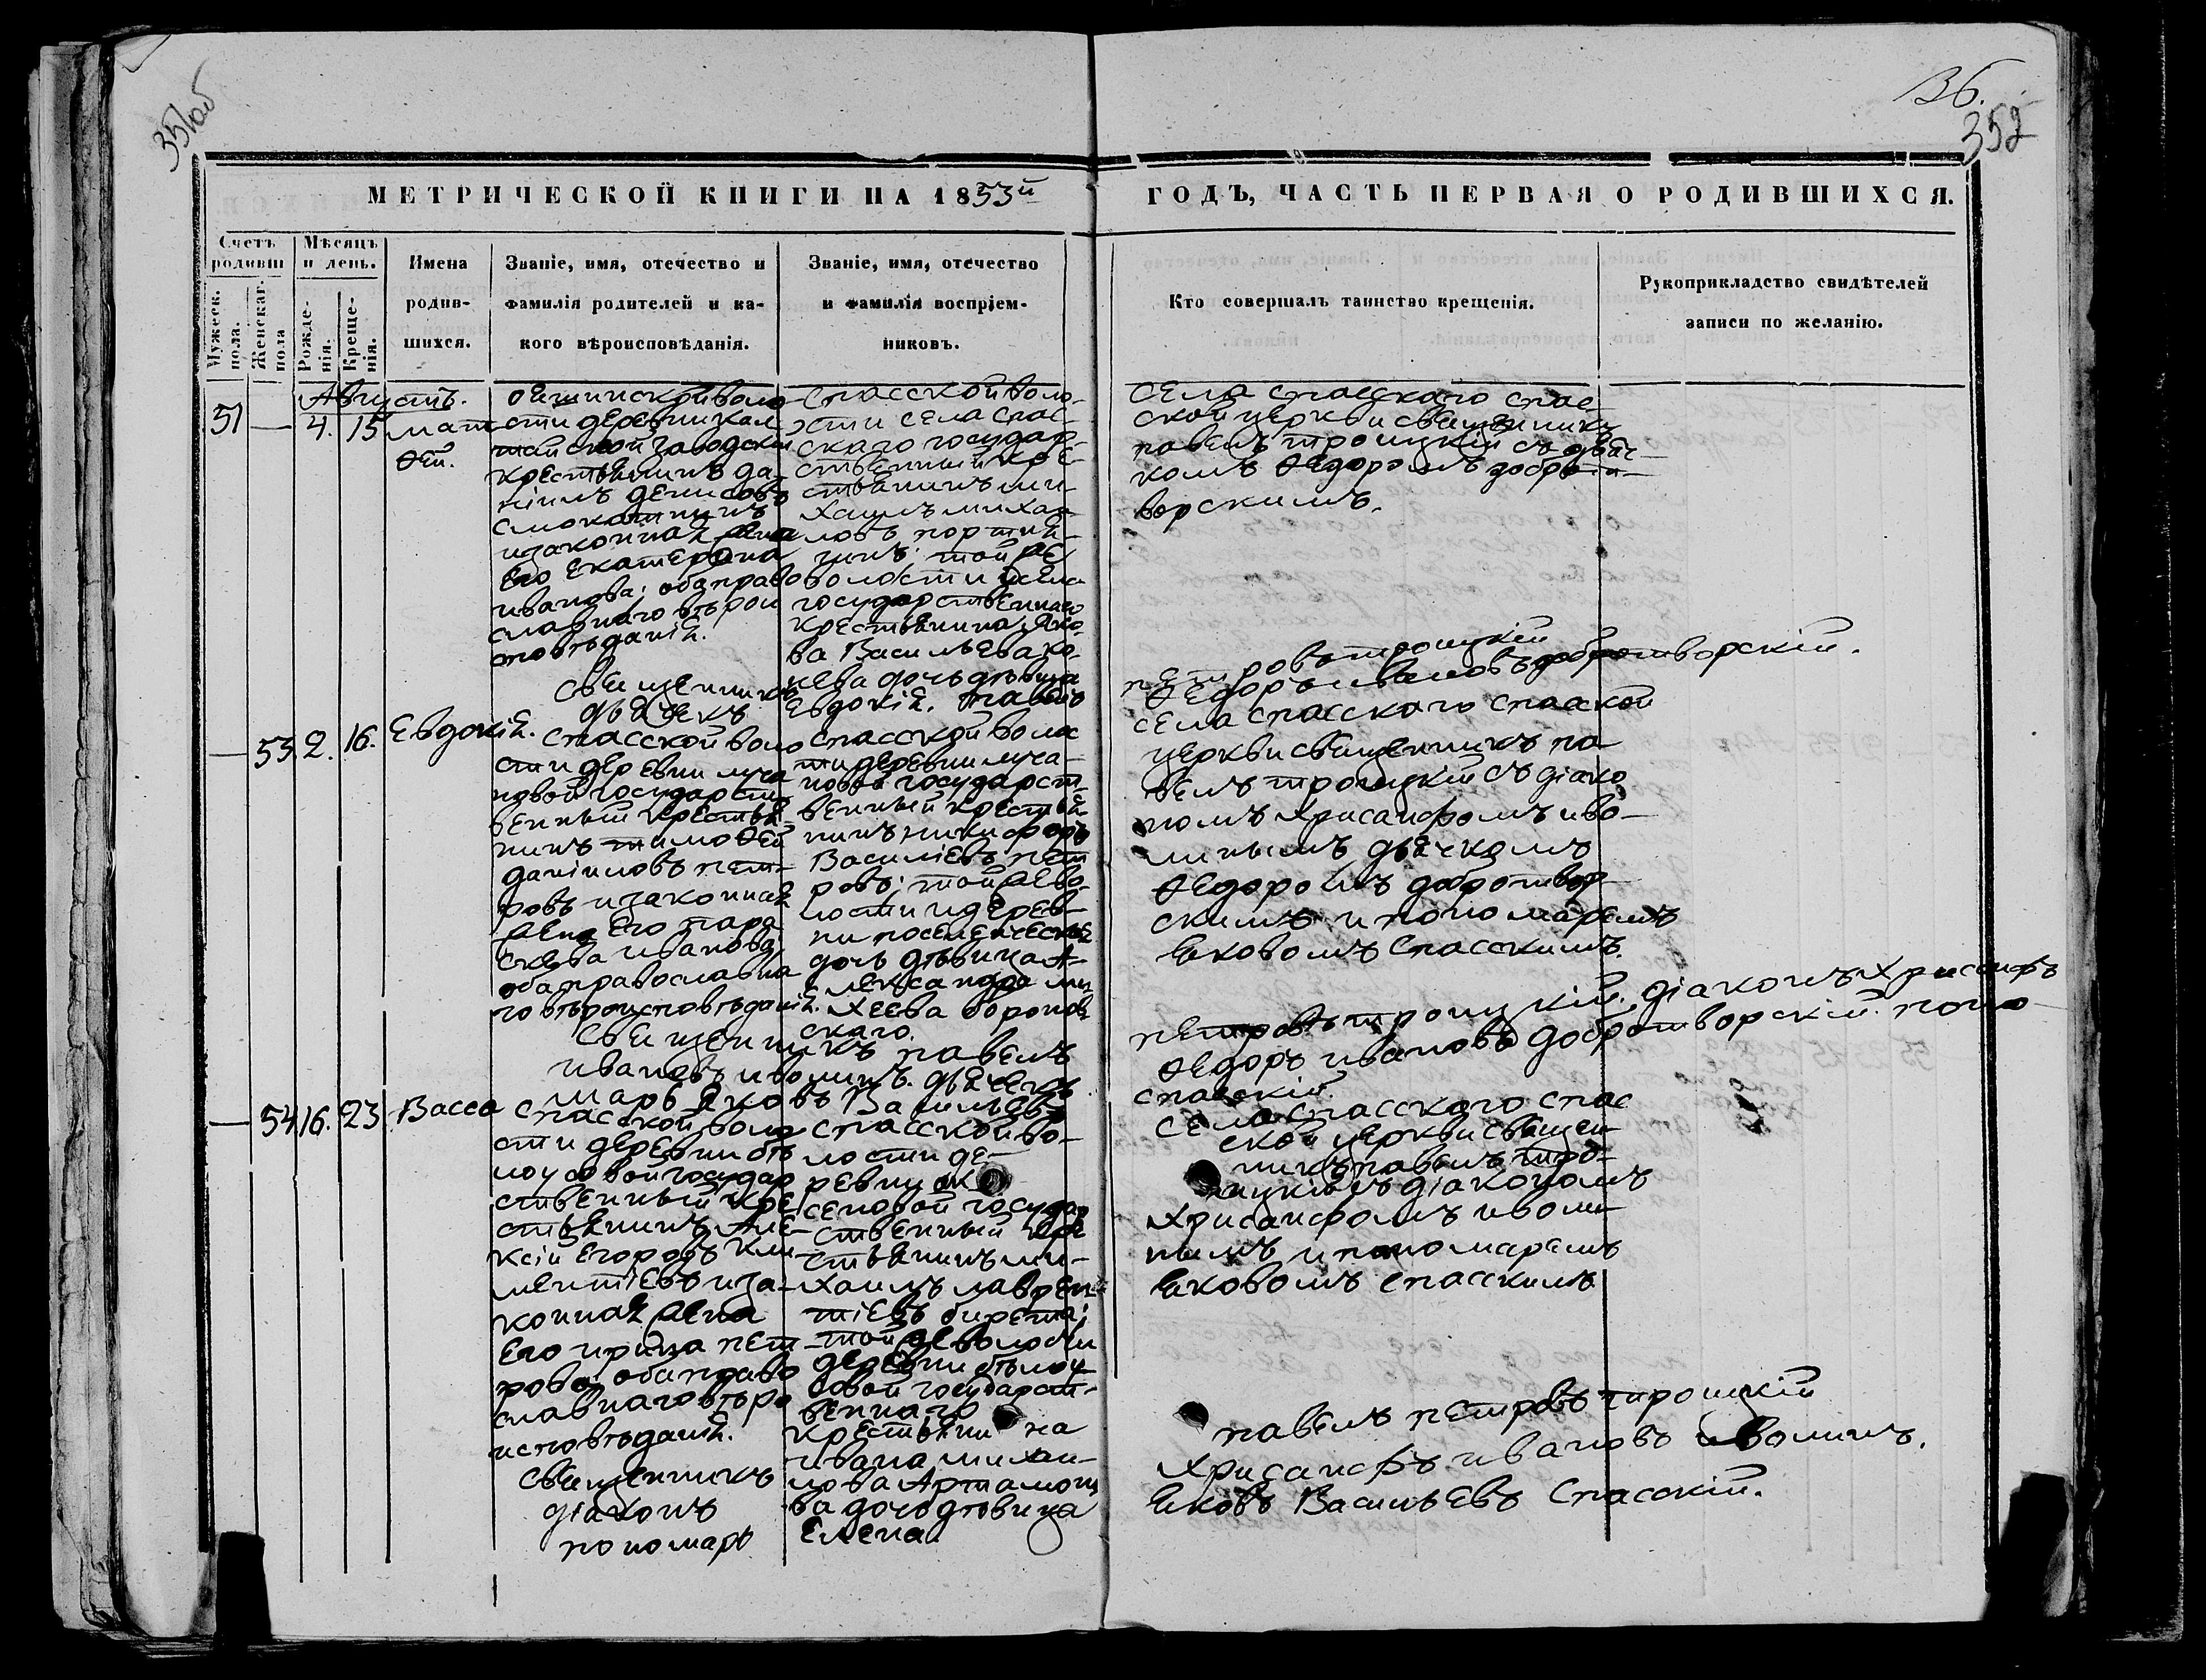 351об
36.
352
МЕТРИЧЕСКОЙ КНИГИ НА 1853й
ГОДЪ, ЧАСТЬ ПЕРВАЯ О РОДИВШИХСЯ.
Счетъ родивш
Мужеск. пола.
Женскаг. пола
Мѣсяцъ и день.
Рожде-
нія.
Креще-
нія.
Имена
родив-
шихся.
Званіе, имя, отечество и
фамилія родителей и ка-
кого вѣроисповѣданія.
Званіе, имя, отечество
и фамилія воспріем-
никовъ.
Кто совершалъ таинство крещенія.
Рукоприкладство свидѣтелей
записи по желанію.
Августъ.
51 — 4. 15
мат
ѳей.
воло
сти деревни
заводски
крестьянинъ да-
ніилъ денисовъ
изаконная жена
его екатерина
иванова; обаправо
славнаго вѣрои
повѣданія.
Священникъ
дьячекъ
Спасской воло-
сти села спас-
скаго государ-
ственный кре-
стьянинъ ми-
хаилъ михаи
ловъ портня-
гинъ; той же
волости исела
государственнаго
крестьянина яко-
ва Васильева
дочь дѣвица
евдокія. павелъ
села спасскаго спас-
ской церкви священникъ
павелъ троицкій съ дьяч-
комъ ѳедоромъ добро-
ворскимъ.
петровъ троицкій
ѳедоръ ивановъ добротворскій.
— 53. 2. 16. Евдокія.
спасской воло
сти деревни луча
новой государст
венный крестья
нинъ тимоѳей
даніиловъ пет-
ровъ изаконная
жена его пара
скева иванова
обаправославна
го вѣроисповѣданія.
Священникъ павелъ
ивановъ иволинъ. дьячекъ
марь яковъ Васильевъ
спасской волос
ти деревни луча-
новой государст
венный крестья
нинъ никифоръ
Василіевъ пет
ровъ; той же во-
лости идерев-
ни
дочь дѣвица А-
лександра ми
хеева воронов
скаго.
села спасскаго спасской
церкви священникъ па
велъ троицкій съ діако
номъ хрисанфомъ иво-
линымъ дьячкомъ
ѳедоромъ добротвор
скимъ и пономаремъ
яковомъ спасскимъ.
петровъ троицкій. діаконъ хрисанфъ
ѳедоръ ивановъ добротворскій. поно
спасскій
— 54 16. 23 Васса
спасской воло
сти деревни бѣ
лоусовой государ
ственный кре
стьянинъ Але-
ксій егоровъ кли
ментіевъ иза-
конная жена
его ирина пет
рова; обаправо
славнаго вѣро
исповѣданія.
Священникъ
діаконъ
пономарь
спасской во-
лости де-
ревни
сеновой государ
ственный кре
стьянинъ ми-
хаилъ лаврен
тіевъ
той же волости
деревни бѣлоу
совой государст-
веннаго
крестьянина
ивана михаи-
лова Артамоно
ва дочь дѣвица
елена
села спасскаго спас
ской церкви священ
никъ павелъ тро-
ицкій съ діакономъ
хрисанфомъ иволи
нымъ и пономаремъ
яковомъ спасскимъ
павелъ петровъ троицкій
хрисанфъ ивановъ иволинъ.
яковъ Васильевъ Спасскій.